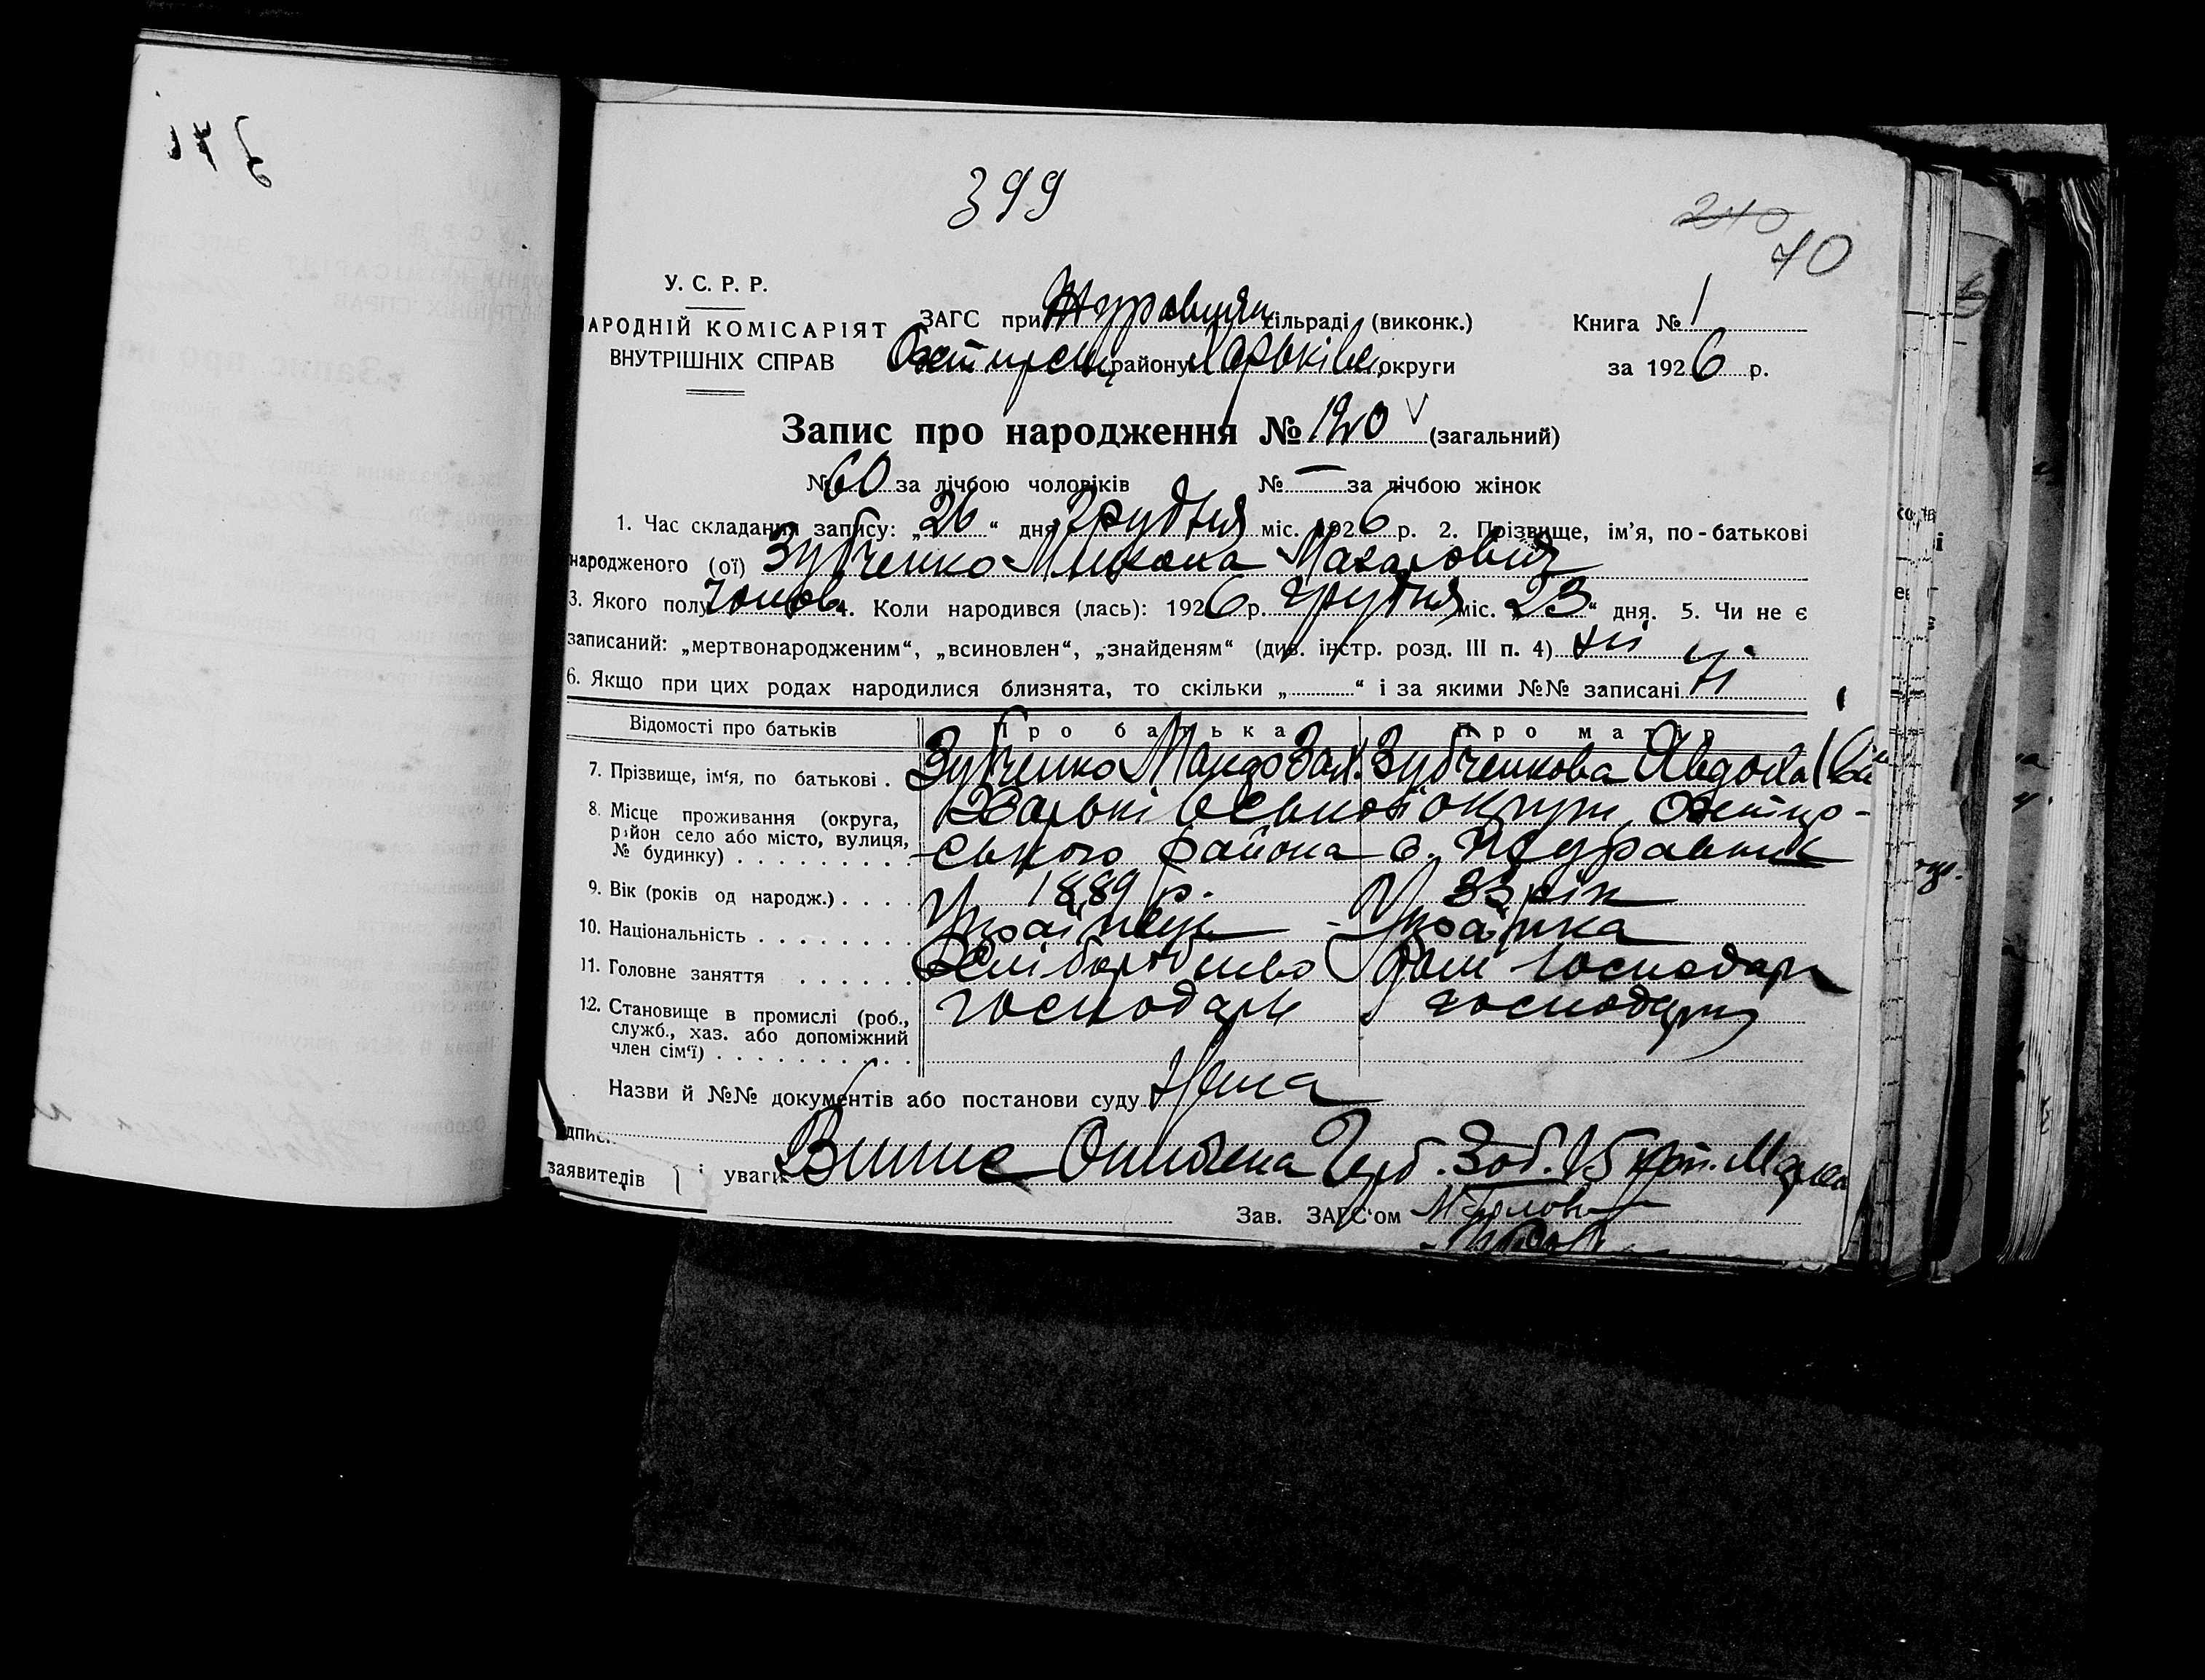 399
210
70
У. С. Р. Р.
НАРОДНІЙ КОМІСАРІЯТ
ВНУТРІШНІХ СПРАВ
ЗАГС при сільраді (виконк.)
району Харківс. округи
Книга № 1
за 1926 р.
Запис про народження № 120 (загальний)
№ 60 за лічбою чоловіків № — за лічбою жінок
1. Час складання запису: „26“ дня Грудня міс. 1926 р. 2. Прізвище, ім'я, по-батькові
народженого (ої) Зубченко Микола Макарович
3. Якого полу Чолов. 4. Коли народився (лась): 1926 р. грудня міс. „23“ дня. 5. Чи не є
записаний: „мертвонародженим“, „всиновлен“, „знайденям“ (див. інстр. розд. III п. 4) ні
6. Якщо при цих родах народилися близнята, то скільки „ “ і за якими №№ записані
Відомості про батьків Про батька Про матір
7. Прізвище, ім'я, по батькові . Зубченко Зах. Зубченкова Авдотья
8. Місце проживання (округа, район село або місто, вулиця, № будинку) Харківської округи,
ського района с. Журавник
9. Вік (років од народж.) 1889 р. 33 рік
10. Національність Українець Українка
11. Головне заняття Хліборобство Дом господар
12. Становище в промислі (роб., служб., хаз. або допоміжний член сім'ї) господарь
Назви й №№ документів або постанови суду Нема
заявителів і уваги Герб. Зоб. 15 коп.
Зав. ЗАГС'ом